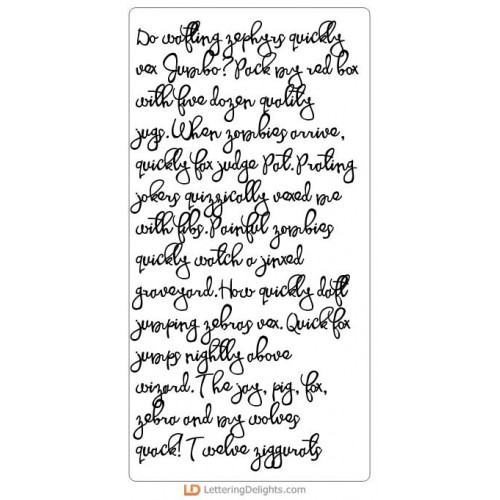 Do wafting zephyrs quickly
vex Jumbo? Pack my red box
with five dozen quality
jugs. When zombies arrive,
quickly fax judge Pat. Prating
jokers quizzically vexed me
with fibs. Painful zombies
quickly watch a jinxed
graveyard. How quickly daft
jumping zebras vex. Quick fox
jumps nightly above
wizard. The jay, pig, fox,
zebra and my wolves
quack! Twelve ziggurats
LD LetteringDelights.com